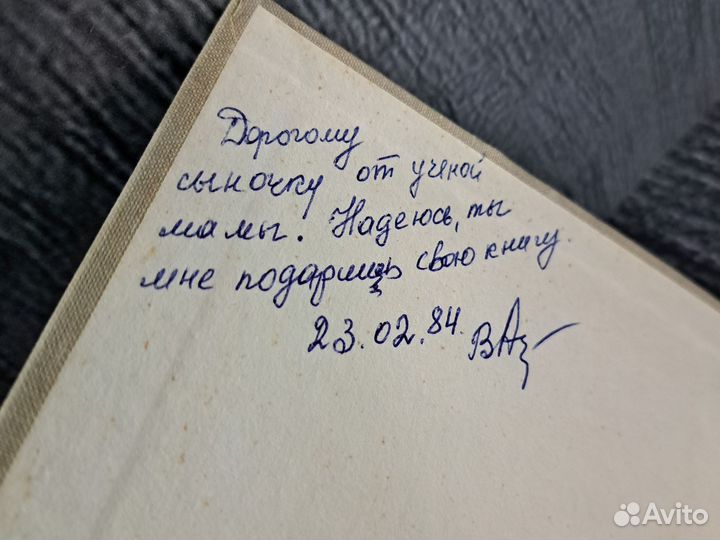 Дорогому
сыночку от ученой
мамы. Надеюсь, ты
мне подаришь свою книгу.
23.02.84.
Avito